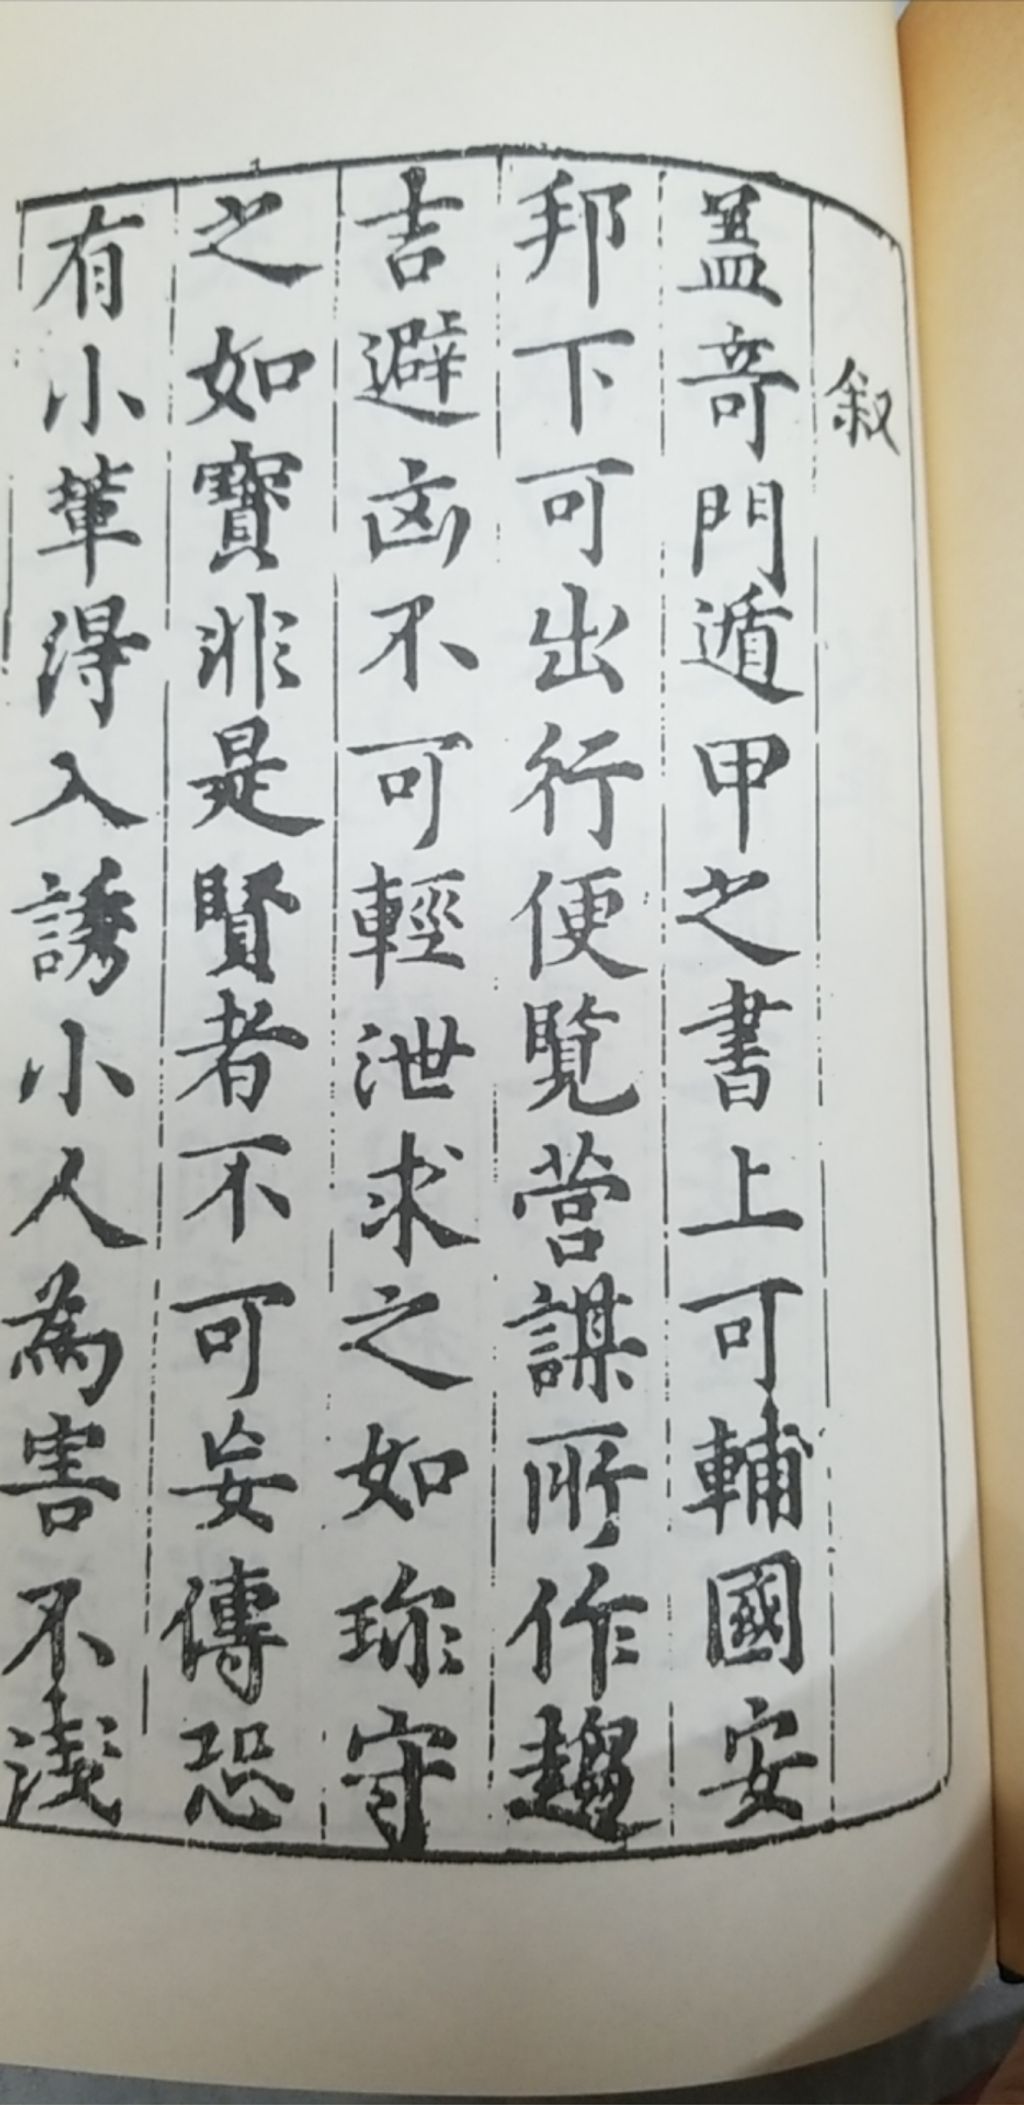 叙
盖竒門遁甲之書上可輔國安
邦下可出行便覽营謀所作趨
吉避凶不可輕泄求之如珎守
之如寳非是賢者不可妄傳恐
有小軰得入誘小人為害不淺